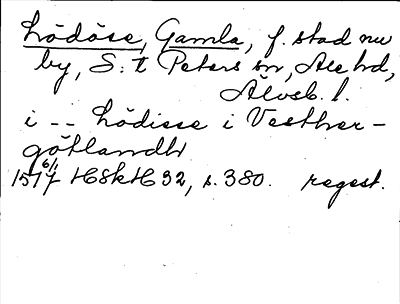 Lödöse, Gamla, f. stad nu
by, S:t Peters sn, Ale hd,
Älvsb. l.
i -- Lödisse i Vesther-
götlandh
6/1
1517 HSkH 32, s. 380. regest.